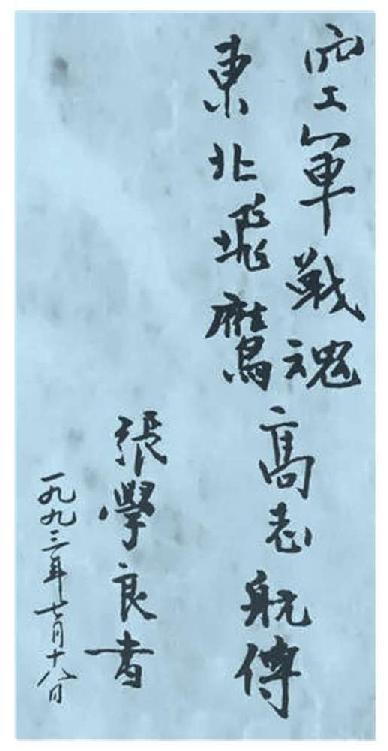 空軍戰魂
東北飛鷹
高志航傳
張學良書
一九九三年七月十八日